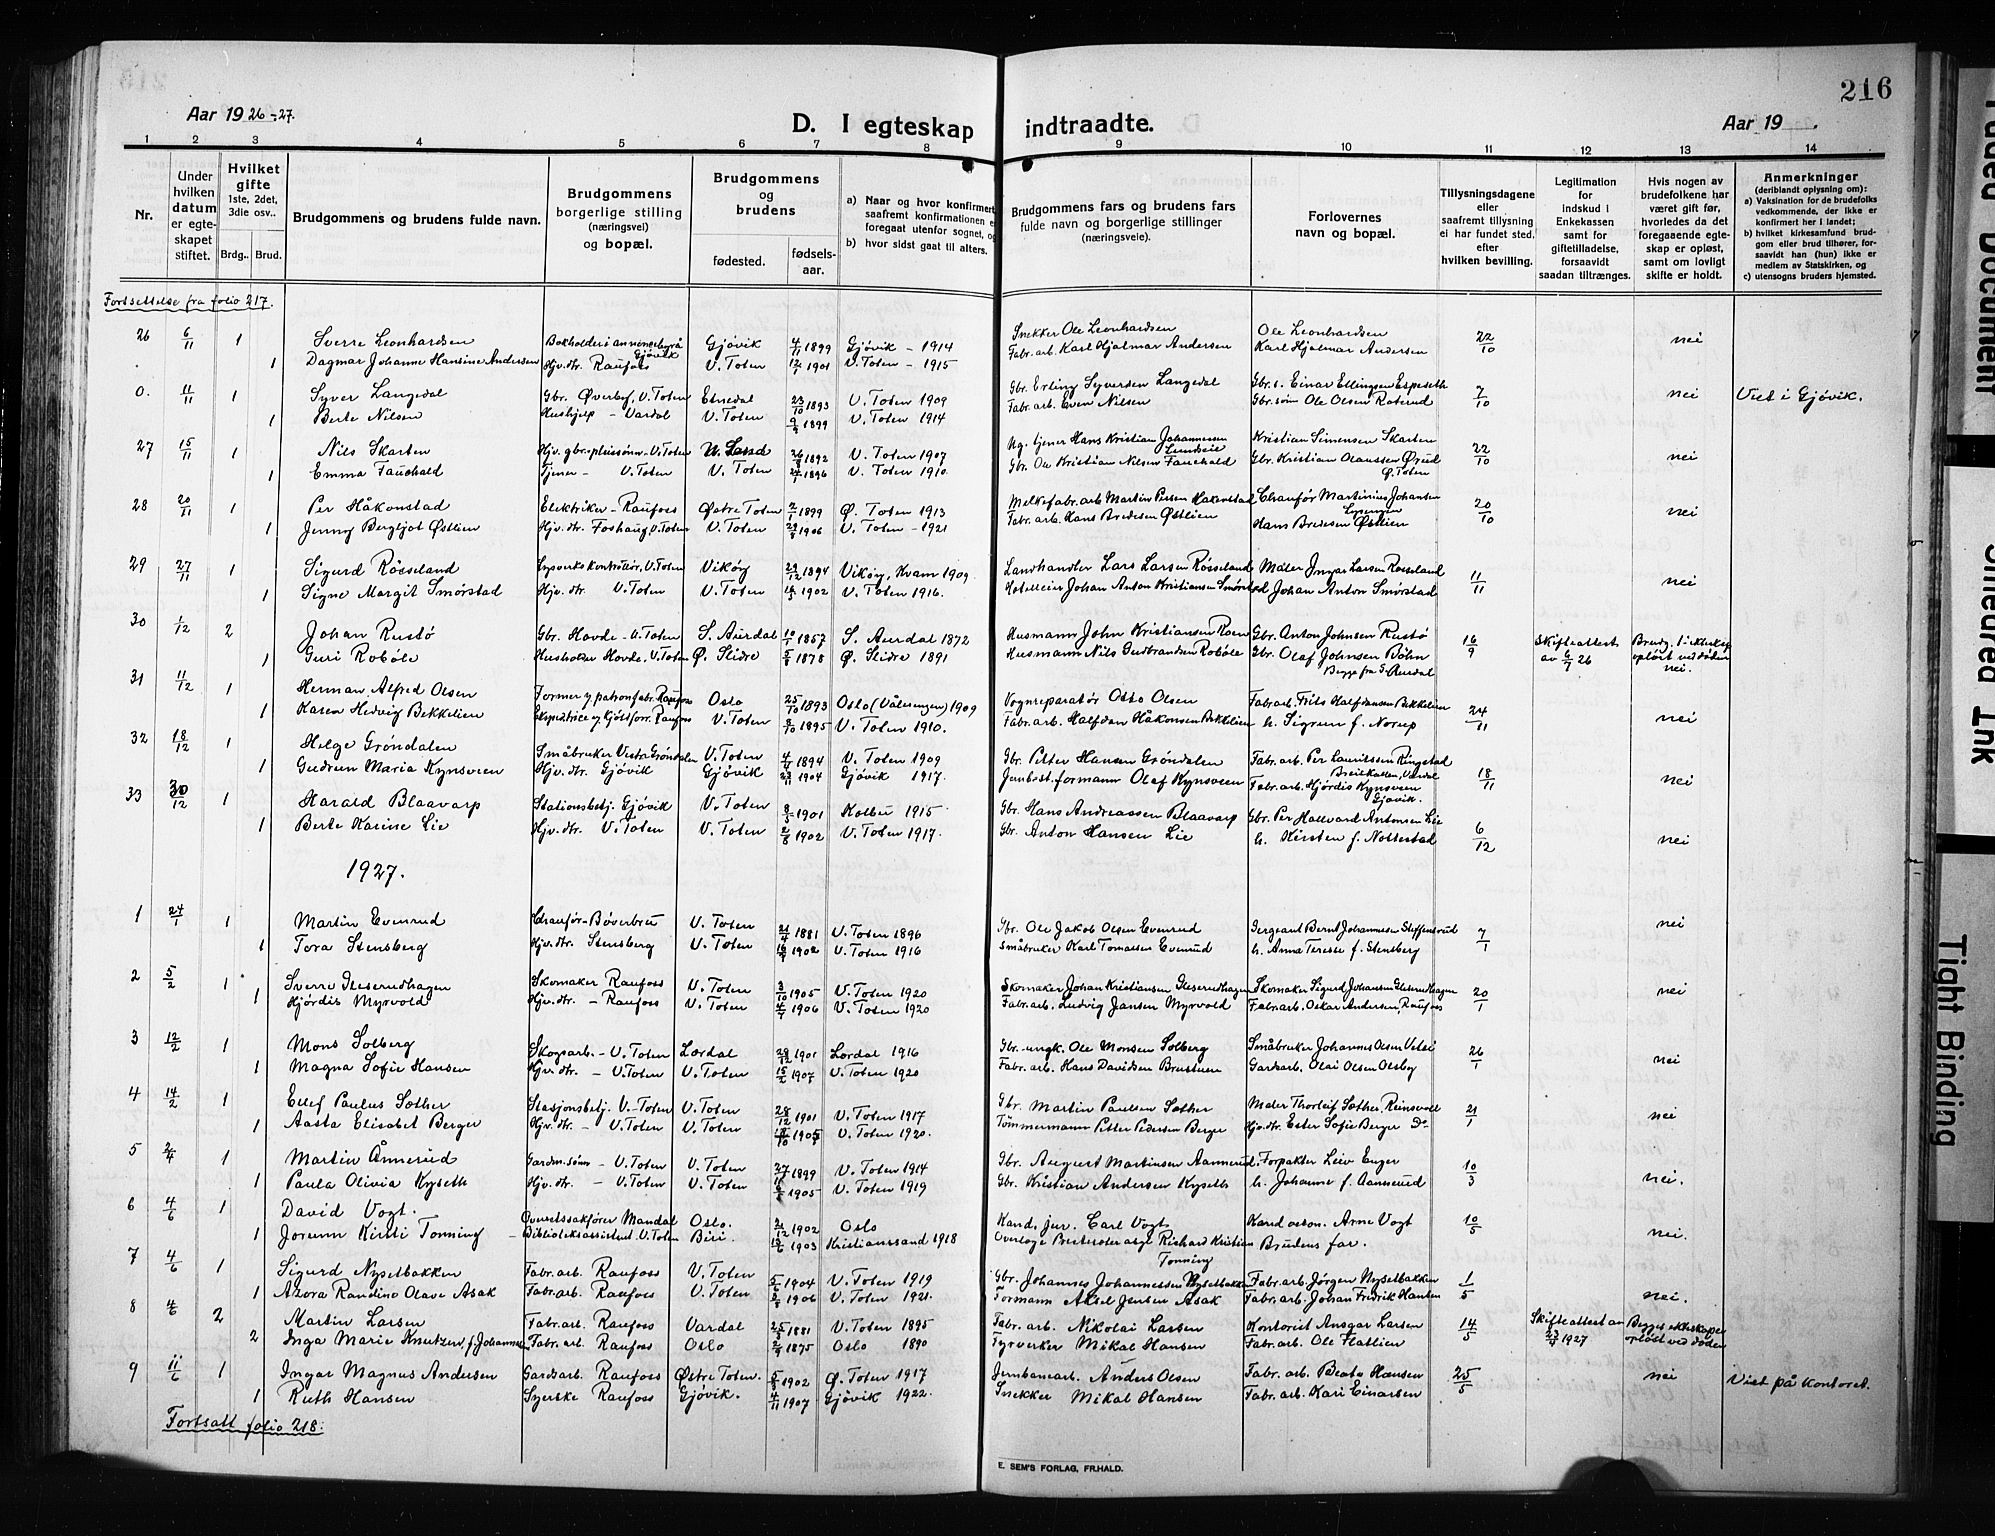 216
Aar 1926-27.
D. I egteskap indtraadte.
Aar 19 .
1 2 3 4 5 6 7 8 9 10 11 12 13 14
Nr.
Under hvilken datum er egteskapet stiftet.
Hvilket gifte 1ste, 2det, 3die osv..
Brdg.. Brud.
Brudgommens og brudens fulde navn.
Brudgommens borgerlige stilling (næringsvei) og bopæl.
Brudgommens og brudens
fødested. fødselsaar.
a) Naar og hvor konfirmert, saafremt konfirmationen er foregaat utenfor sognet, og
b) hvor sidst gaat til alters.
Brudgommens fars og brudens fars fulde navn og borgerlige stillinger (næringsveie).
Forlovernes navn og bopæl.
Tillysningsdagene eller saafremt tillysning ei har fundet sted, efter hvilken bevilling.
Legitimation for indskud i Enkekassen samt for giftetilladelse, forsaavidt saadan tiltrænges.
Hvis nogen av brudefolkene har været gift før, hvorledes da det foregaaende egteskap er opløst, samt om lovligt skifte er holdt.
Anmerkninger (deriblandt oplysning om): a) Vaksination for de brudefolks vedkommende, der ikke er konfirmert her i landet; b) hvilket kirkesamfund brudgom eller brud tilhører, forsaavidt han (hun) ikke er medlem av Statskirken, og c) utensogns bruders hjemsted.
Fortsettelse fra folio 217.
26 6/11 1 Sverre Leonhardsen Gjøvik 4/11 1899 Gjøvik - 1914 Snekker Ole Leonhardsen Ole Leonhardsen 22/10 nei
1 Dagmar Johanne Hansine Andersen Hjv. dtr. Raufoss V. Toten 12/1 1901 V. Toten - 1915 Fabr. arb. Karl Hjalmar Andersen Karl Hjalmar Andersen
0. 11/11 1 Syver Langedal Gbr. Øverbef, V. Toten Etnedal 23/10 1893 V. Toten 1909 Gbr. Erling Syversen Langedal Gbr. s. Einar Ellingsen Espeseth 7/10 nei Viet i Gjøvik.
1 Berte Nilsen Hushjelp - Vardal V. Toten 1899 V. Toten 1914 Fabr. arb. Even Nilsen Gbr. søn Ole Olsen Roterud
27 15/11 1 Nils Skarten Hjv. gbr. pleiesønn - V. Toten 1892 V. Toten 1907 Ug. tjener Hans Kristian Johannessen Kristian Simensen Skarten 22/10 nei
1 Emma Fauchald Tjener - V. Toten V. Toten 1896 V. Toten 1910. Gbr. Ole Kristian Nilsen Fauchald Gbr. Kristian Olaussen Ø. Toten
28 20/11 1 Per Håkonstad Elektriker - Raufoss Østre Toten 2/1 1899 Ø. Toten 1913 Melkefabr. arb. Martin Persen Håkonstad Chauffør Martinius Johansen 20/10 nei
1 Jenny Bergljot Østlien Hjv. dtr. Foshaug, V. Toten V. Toten 1906 V. Toten - 1921 Fabr. arb. Hans Bredesen Østlien Hans Bredesen Østlien
29 27/11 1 Sigurd Röiseland Lysverkskontrollör, V. Toten Vikøy 29/12 1894 Vikøy, Kvam 1909. Landhandler Lars Larsen Röiseland Maler Ingar Larsen Roiseland 11/11 nei
1 Signe Margit Smørstad Hjv. dtr. V. Toten V. Toten 1902 V. Toten 1916. Hotelleier Johan Anton Kristiansen Smørstad Johan Anton Smørstad
30 1/12 2 Johan Rustø Gbr. Hovde - V. Toten S. Aurdal 1857 S. Aurdal 1872 Husmann John Kristiansen Roen Gbr. Anton Johnsen Rustø 16/9 Skifteattest av 6/7 26 Brudg. 1. ekteskap opløst ved døden nei.
1 Guri Robøle Husholder Hovde, V. Toten Ø. Slidre 1878 Ø. Slidre 1891 Husmann Nils Gudbrandsen Robøle Gbr. Olaf Johnsen Bøhn Begge fra S. Aurdal
31 11/12 1 Herman Alfred Olsen Former v/ patronfabr. Raufoss Oslo 25/10 1893 Oslo (Vålerengen) 1909 Vognreparatør Otto Olsen Fabr. arb. Frits Halfdansen Bekkelien 24/11 nei
1 Karen Hedvig Bekkelien Ekspeditrice v/ Kjöttforr. Raufoss V. Toten 8/10 1895 V. Toten 1910. Fabr. arb. Halfdan Håkonsen Bekkelien h. Sigrun f. Norup
32 18/12 1 Helge Gröndalen Småbruker Vestre Gröndalen V. Toten 4/4 1894 V. Toten 1909 Gbr. Petter Hansen Gröndalen Fabr. arb. Per Lauritssen Ringstad 18/11 nei
1 Gudrun Maria Kynsveen Hjv. dtr. Gjøvik Gjøvik 23/11 1904 Gjøvik 1917. Jernbest. formann Olaf Kynsveen Fabr. arb. Hjördis Kynsveen Gjøvik.
33 30/12 1 Harald Blaavarp Stationsbetj. Gjøvik V. Toten 1901 Kolbu 1915 Gbr. Hans Andreassen Blaavarp Gbr. Per Hallvard Antonsen Lie 6/12 nei
1 Berte Karine Lie Hjv. dtr. V. Toten V. Toten 2/8 1902 V. Toten 1917. Gbr. Anton Hansen Lie h. Kirsten f. Nøttestad
1927.
1 24/1 1 Martin Evenrud Chauffør - Bøverbru V. Toten 1881 V. Toten 1896 Gbr. Ole Jakob Olsen Evenrud Sergeant Bernt Johannessen Steffensrud 7/1 nei
1 Tora Stensberg Hjv. dtr. Stensberg V. Toten 1902 V. Toten 1916 Småbruker Karl Tomassen Evenrud h. Anna Terese f. Stensberg
2 5/2 1 Sverre Gleserudhagen Skomaker Raufoss V. Toten 3/10 1905 V. Toten 1920 Skomaker Johan Kristiansen Gleserudhagen Skomaker Sigurd Johansen Gleserudhagen 20/1 nei
1 Hjördis Myrvold Hjv. dtr. - Raufoss V. Toten 1906 V. Toten 1920 Fabr. arb. Ludvig Jansen Myrvold Fabr. arb. Oskar Andersen, Raufoss
3 12/2 1 Mons Solberg Skogsarb. - V. Toten Lærdal 28/12 1901 Lærdal 1916 Gbr. ungk. Ole Monsen Solberg Småbruker Johannes Olsen 26/1 nei
1 Magna Sofie Hansen Hjv. dtr. - V. Toten V. Toten 15/2 1907 V. Toten 1920 Fabr. arb. Hans Davidsen Brustuen Gardsarb. Olai Olsen Olsby
4 14/2 1 Ellef Paulus Sæther Stasjonsbetj. V. Toten V. Toten 28/12 1901 V. Toten 1917 Gbr. Martin Paulsen Sæther Maler Thorleif Sæther, Reinsvoll 21/1 nei
1 Aasta Elisabet Berger Hjv. dtr. - V. Toten V. Toten 1905 V. Toten 1920. Tömmermann Petter Pedersen Berger Hjv. dtr. Ester Sofie Berger Do-
5 2/4 1 Martin Ånnerud Gardm. sönn - V. Toten V. Toten 1899 V. Toten 1914 Gbr. August Martinsen Aannerud. Forpakter Leiv Enger 10/3 nei.
1 Paula Olivia Kyseth Hjv. dtr. - V. Toten V. Toten 1905 V. Toten 1919 Gbr. Kristian Andersen Kyseth h. Johanne f. Aannerud
6 4/6 1 David Vogt. Overrettssakfører Mandal Oslo. 21/12 1902 Oslo Kand. jur. Carl Vogt Kand. oecon. Arne Vogt 10/5 nei.
1 Jorunn Kirsti Tonning - Biblioteksassistent V. Toten Biri. 1903 Kristianssand 1918 Overlæge Richard Kristian Tonning Brudens far.
7 4/6 1 Sigurd Nysetbakken Fabr. arb. Raufoss V. Toten 1904 V. Toten 1919 Gbr. Johannes Johannessen Nysetbakken Fabr. arb. Jörgen Nysetbakken 1/5 nei.
1 Azora Randine Olave Asak Fabr. arb. Raufoss V. Toten 1906 V. Toten 1921. Formann Aksel Jensen Asak Fabr. arb. Johan Fredrik Hansen
8 4/6 2 Martin Larsen Fabr. arb. Raufoss Vardal 1881 V. Toten 1895 Fabr. arb. Nikolai Larsen Kontorist Ansgar Larsen 14/5 Skifteattest av 1927 Begges ekteskaper opløst ved døden
2 Inga Marie Knutzen f. Johannesen Fabr. arb. Raufoss Oslo 1875 Oslo 1890 Fyrverker Mikal Hansen Fabr. arb. Ole Flatlien
9 11/6 1 Ingar Magnus Andersen Gardsarb. Raufoss Østre Toten. 1902 Ø. Toten 1917 Jernbanearb. Anders Olsen Fabr. arb. Beate Hansen 25/5 nei Viet på kontoret.
1 Ruth Hansen Syerske Raufoss Gjøvik. 4/11 1907 Gjøvik 1922. Snekker Mikal Hansen Fabr. arb. Kari Einarsen
Fortsatt folio 218.
E. SEM'S FORLAG, FR.HALD.
Faded Document
Smeared Ink
Tight Binding